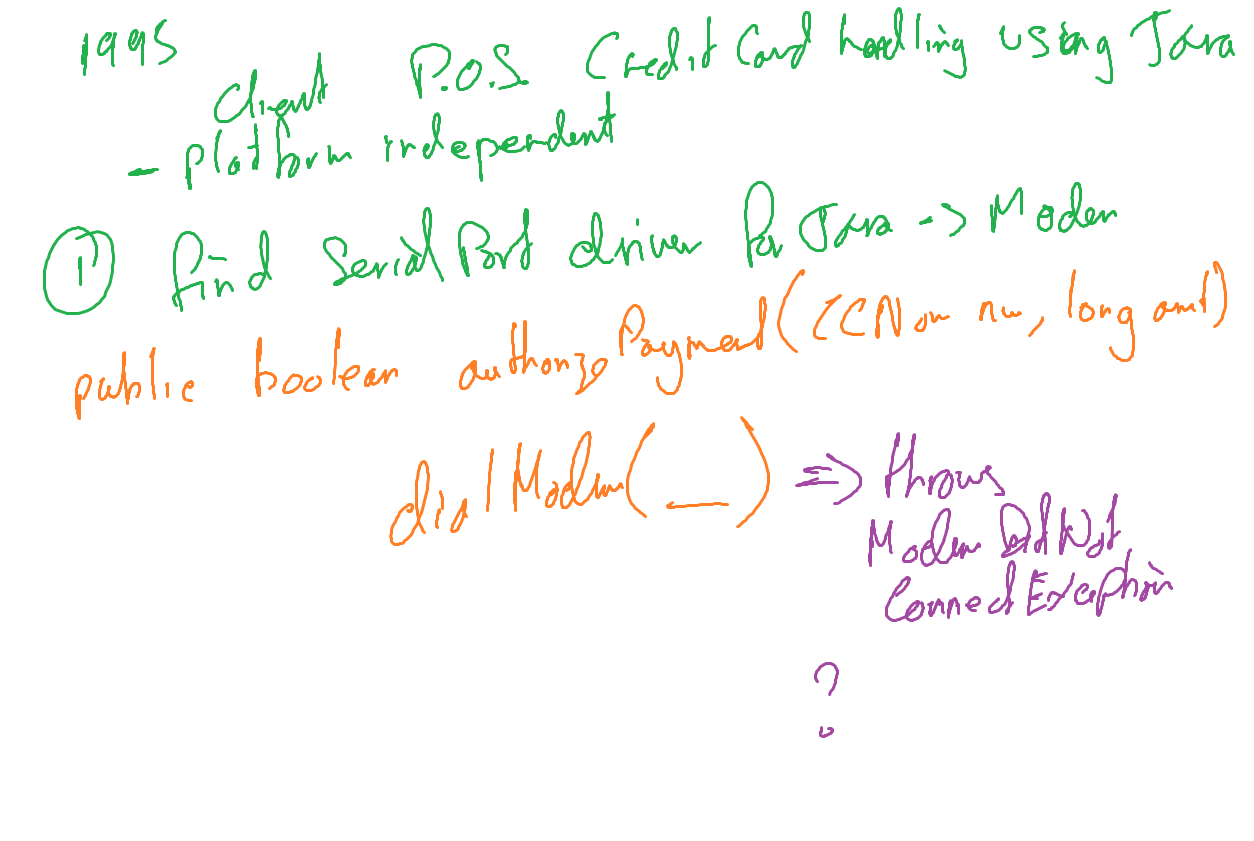 1995
Client P.O.S. Credit Card handling using Java
- platform independent
① find Serial Port driver for Java -> Modem
public boolean authorize Payment (CCNum nu, long amt)
dial Modem(__) => throws
Modem Did Not
Connect Exception
?